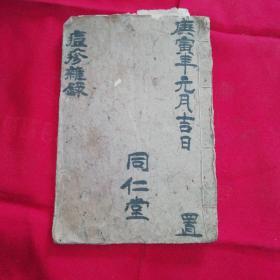 庚寅年元月吉日 置
同仁堂
痘疹雜錄